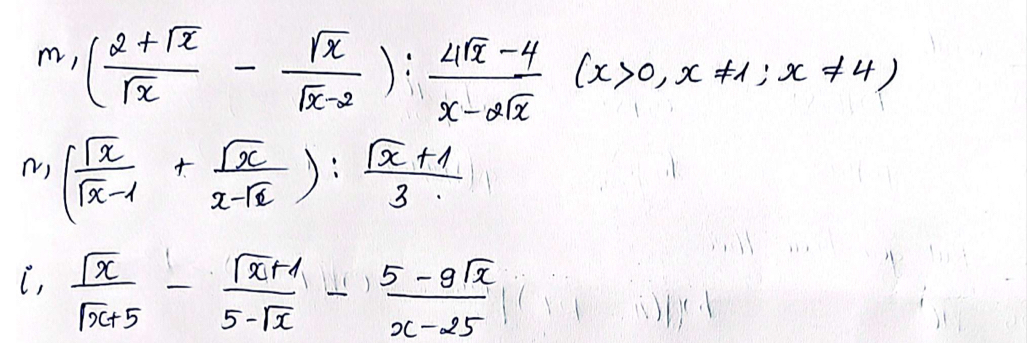 m, ((2 + √x)/√x − √x/(√x−2)) : (4√x − 4)/(x − 2√x) (x>0, x ≠1; x ≠4)
n, (√x/(√x−1) + √x/(x−√x)) : (√x + 1)/3
i, √x/(√x+5) − (√x+1)/(5−√x) − (5 − 9√x)/(x−25)